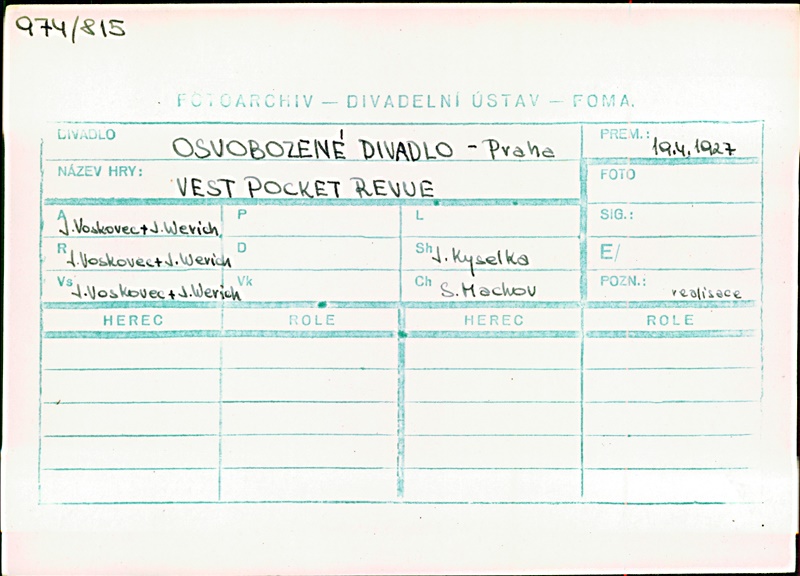 974/815
FOTOARCHIV — DIVADELNÍ ÚSTAV — FOMA.
DIVADLO OSVOBOZENÉ DIVADLO - Praha PREM.: 19.4.1927
NÁZEV HRY: VEST POCKET REVUE FOTO
A J.Voskovec+J.Werich P L SIG.:
R J.Voskovec+J.Werich D Sh J. Kyselka E/
Vs J.Voskovec+J.Werich Vk Ch S.Machov POZN.: realisace
HEREC ROLE HEREC ROLE